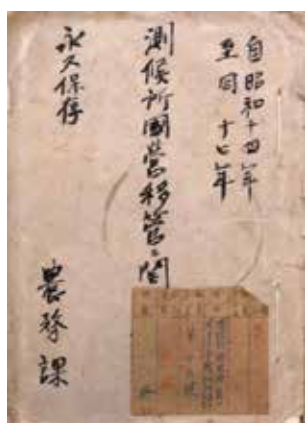 自昭和十四年
至同 十七年
測候所國營移管ニ関
永久保存
農務課